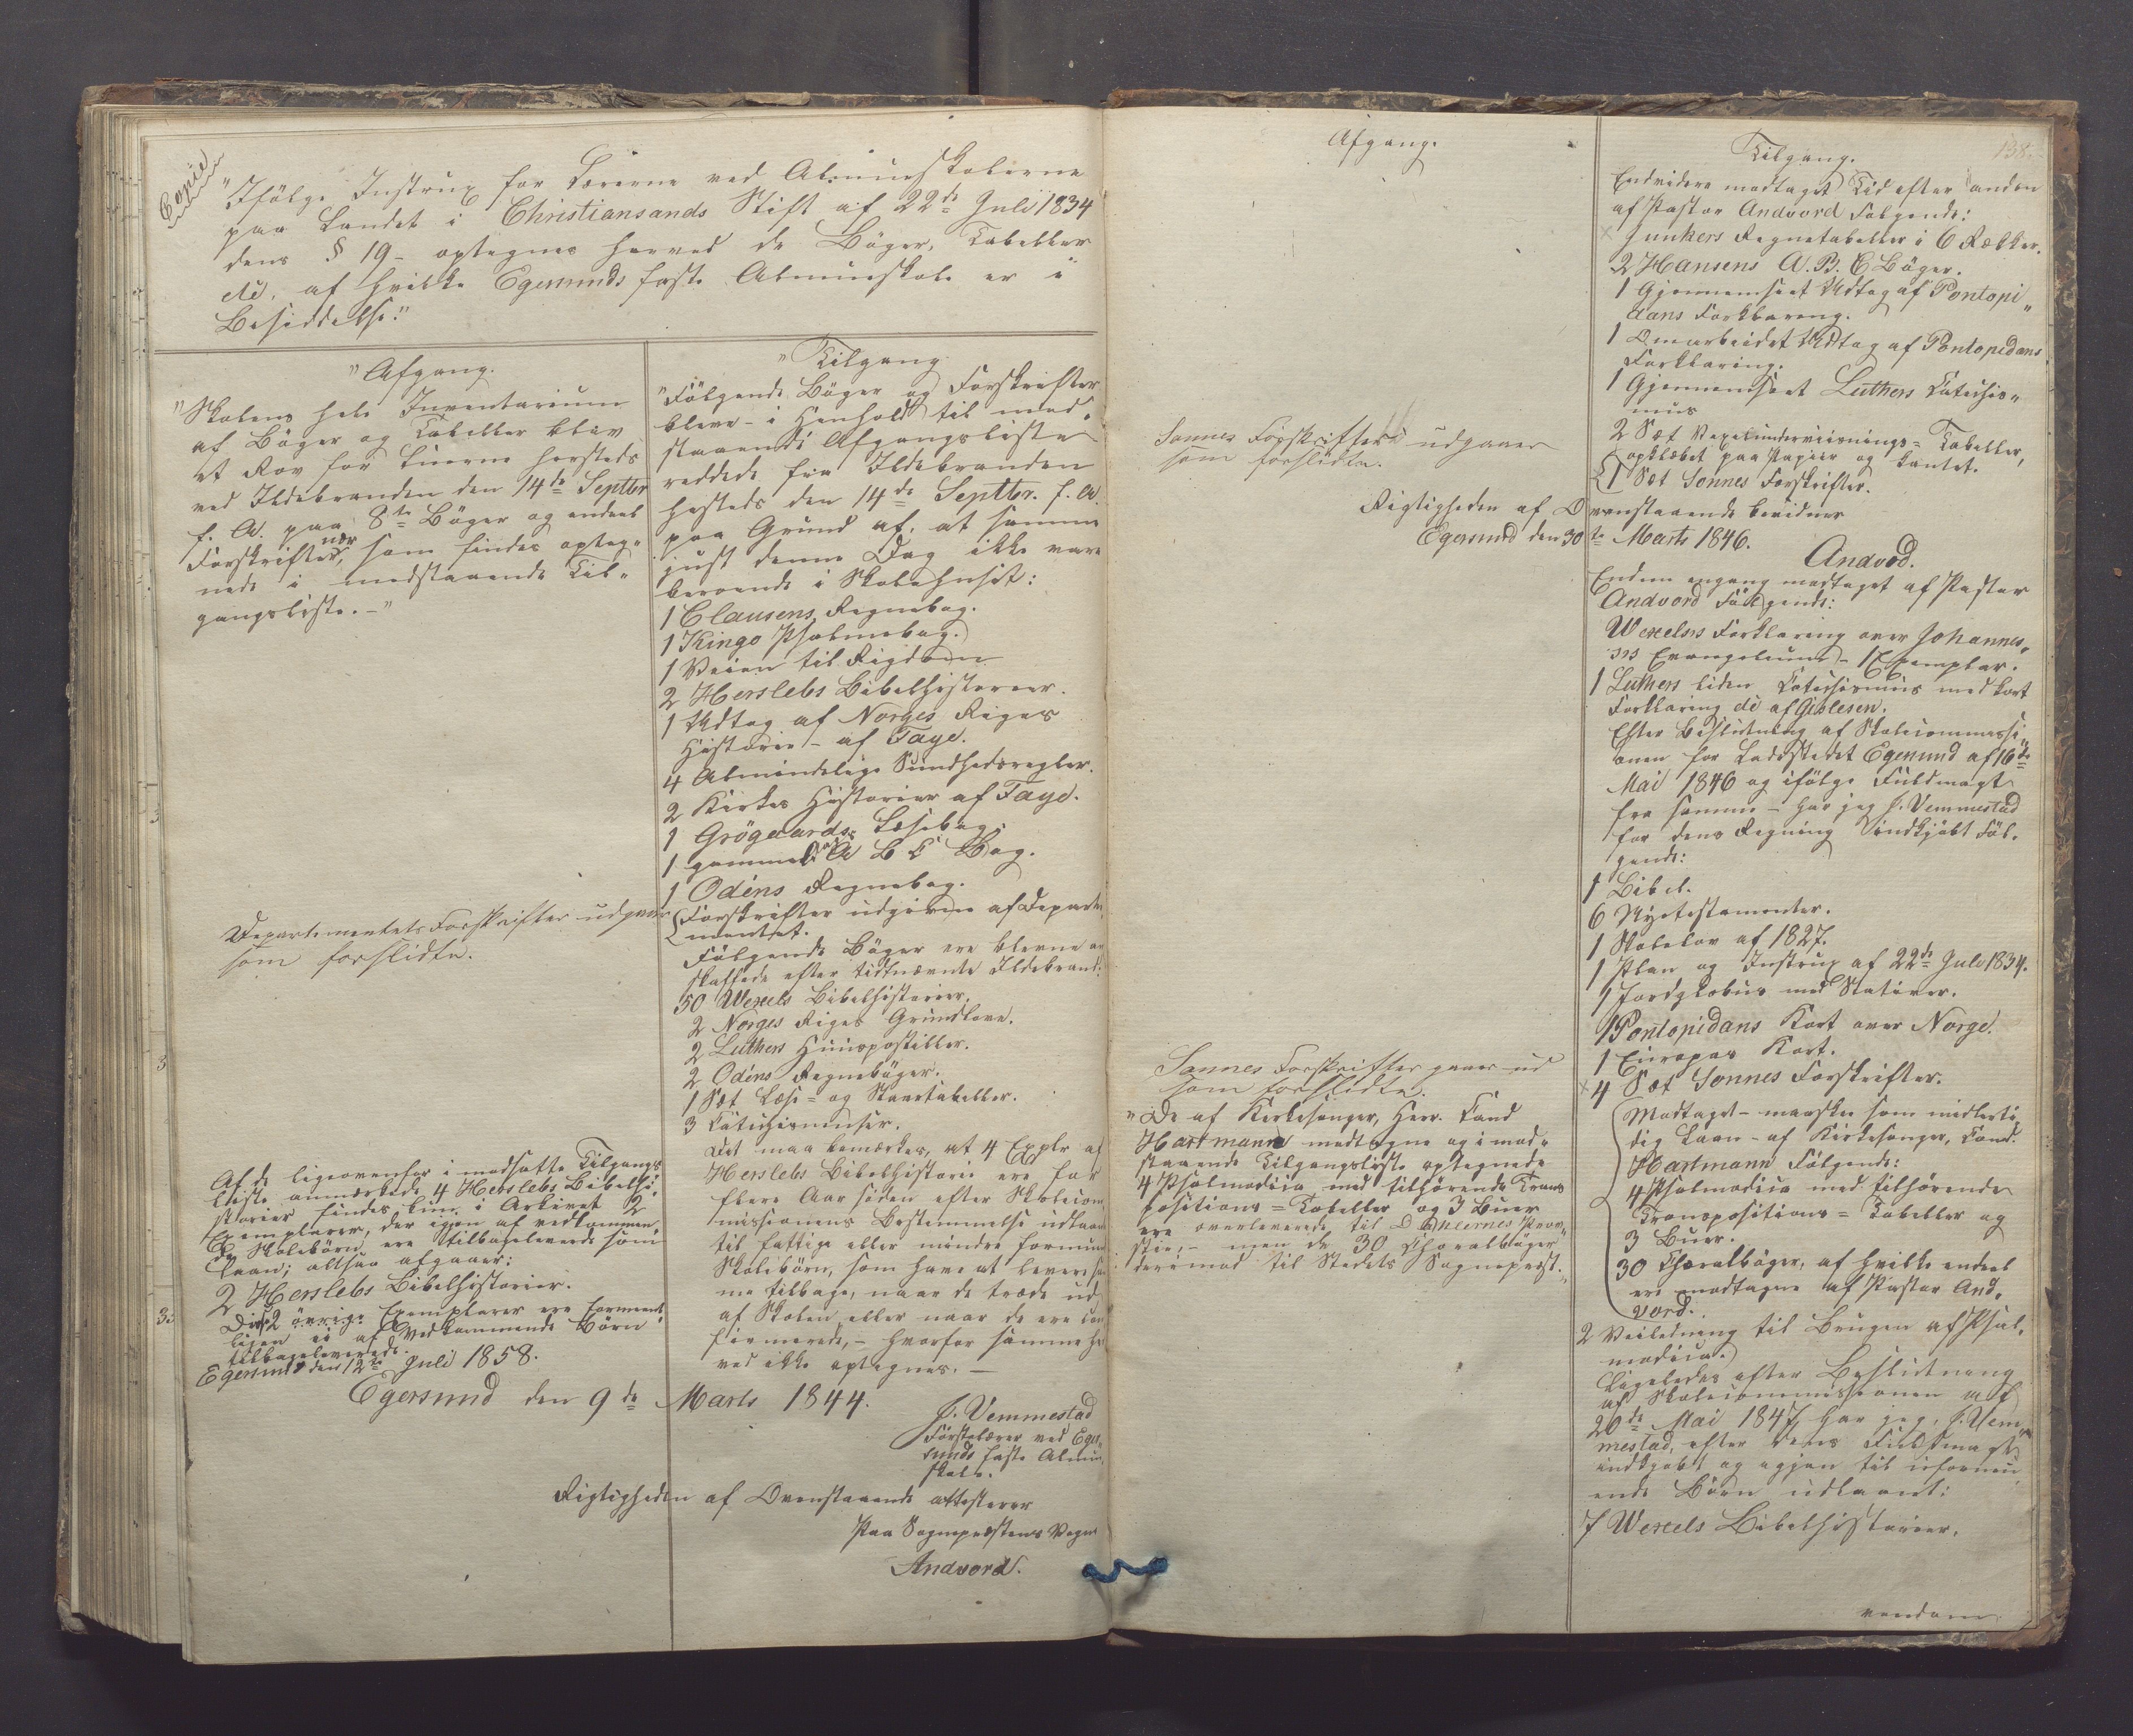 Copie
"Ifölge Instrux for Lærerne ved Almueskolerne
paa Landet i Christiansands Stift af 22de Juli 1834
dens § 19 - optegnes herved de Bøger, Tabeller
etc. af hvilke Egersunds faste Almueskole er i
Besiddelse."
"Afgang.
"Skolens hele Inventarium
af Bøger og Tabeller blev
et Rov for Luerne hersteds
ved Ildebranden den 14de Septbr
f. A. paa 8te Bøger og endeel
Forskrifter nær, som findes opteg-
nede i modstaaende Til-
gangsliste. -"
Departementets Forskrifter udgaaer
som forslidte.
Af de ligeoverfor i modsatte Tilgangs
liste anmærkede 4 Herslebs Bibelhi-
storier findes kun i Arkivet 2
Exemplarer, der igjen af vedkommen-
de Skolebørn ere tilbageleverede som
Laan; altsaa afgaaer:
2 Herslebs Bibelhistorier.
Disse 2 øvrige Exemplarer ere formeent-
ligen ei af Vedkommende Børn
tilbageleverede.
Egersund den 12te Juli 1858.
"Tilgang
"Følgende Bøger og Forskrifter
bleve - i Henhold til mod-
staaende Afgangsliste
reddede fra Ildebranden
hersteds den 14de Septbr. f. A.
paa Grund af, at samme
just denne Dag ikke vare
beroende i Skolehuset:
1 Clausens Regnebog.
1 Kingo Psalmebog.
1 Veien til Rigdom
2 Herslebs Bibelhistorier.
1 Udtog af Norges Riges
Historie - af Faye.
4 Almindelige Sundhedsregler.
2 Kirkes Historier af Faye.
1 Grøgaards Læsebog.
1 gammel A B C Bog.
1 Odéns Regnebog.
Forskrifter udgivne af Departe-
mentet.
Følgende Bøger ere blevne an
skaffede efter tidtnævnte Ildebrand:
50 Wexels Bibelhistorier.
2 Norges Riges Grundlove.
2 Luthers Huuspostiller.
2 Odéns Regnebøger.
1 Sæt Læse- og Stavetabeller.
3 Catechismuser.
Det maa bemærkes, at 4 Explr af
Herslebs Bibelhistorie ere for
flere Aar siden efter Skolecom
missionens Bestemmelse udlaant
til fattige eller mindre formuende
Skolebørn, som have at levere sam
me tilbage, naar de træde ud
af Skolen eller naar de ere con
firmerede, - hvorfor samme her
ved ikke optegnes. -
Egersund den 9de Marts 1844.
J. Vemmestad
Førstelærer ved Eger-
sunds faste Almue
skole.
Rigtigheden af Ovenstaaende attesterer
Paa Sognepræstens Vegne
Andvord.
Afgang.
Sannes Forskrifter udgaaer
som forslidte.
Sannes Forskrifter gaaer ud
som forslidte.
"De af Kirkesanger, Herr. Cand
Hartmann modtagne og i mod-
staaende Tilgangsliste optegnede
4 Psalmodica med tilhørende Trans
positions-Tabeller og 3 Buer
ere overleverede til Dahlernes Prov-
stie, - men de 30 Choralbøger
derimod til Stedets Sognepræst.
138.
Tilgang.
Endvidere modtaget Tid efter anden
af Pastor Andvord Følgende:
x Junkers Regnetabeller i 6 Rækker.
2 Hansens A. B. C Bøger.
1 Gjennemseet Udtog af Pontopi-
dans Forklaring.
1 Omarbeidet Udtog af Pontopidans
Forklaring.
1 Gjennemseet Luthers Catechis-
mus
2 Sæt Vexelunderviisnings-Tabeller,
opklæbet paa Papiir og kantet.
1 Sæt Sonnes Forskrifter.
Rigtigheden af Ovenstaaende bevidner
Egersund den 30te Marts 1846.
Andvord.
Endnu engang modtaget af Pastor
Andvord Følgende:
Wexelses Forklaring over Johannes-
ses Evangelium - 1 Exemplar.
1 Luthers liden Catechismus med kort
Forklaring etc af Gislesen.
Efter Beslutning af Skolecommissi-
onen for Ladestedet Egersund af 16de
Mai 1846 og ifølge Fuldmagt
fra samme - har jeg J. Vemmestad
for dens Regning indkjøbt Føl-
gende:
1 Bibel.
6 Nyetestamenter.
1 Skolelov af 1827.
1 Plan og Instrux af 22de Juli 1834.
1 Jordglobus med Stativer.
1 Pontopidans Kort over Norge.
1 Europas Kort.
x 4 Sæt Sonnes Forskrifter.
Modtaget - maaskee som midlerti-
dig Laan - af Kirkesanger, Cand.
Hartmann Følgende:
4 Psalmodica med tilhørende
Transpositions-Tabeller og
3 Buer.
30 Choralbøger, af hvilke endeel
ere modtagne af Pastor And-
vord.
2 Veiledning til Brugen af Psal-
modica.
Ligeledes efter Beslutning
af Skolecommissionen af
20de Mai 1847, har jeg, J. Vem-
mestad, efter dens Fuldmagt
indkjøbt og igjen til uformu-
ende Børn udlaant:
7 Wexels Bibelhistorier.
vendom.